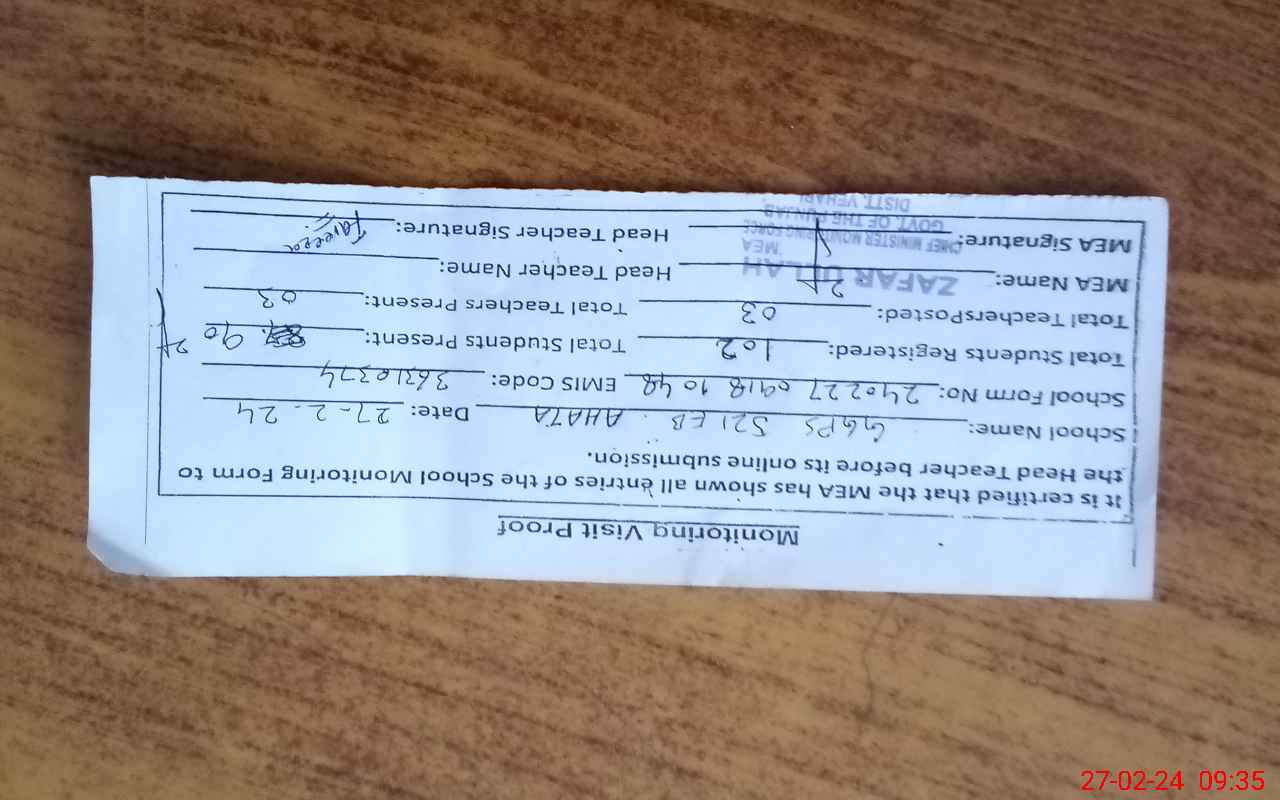 Monitoring Visit Proof
It is certified that the MEA has shown all entries of the School Monitoring Form to
the Head Teacher before its online submission.
School Name: GGPS 521 EB. AHATA Date: 27-2-24
School Form No: 240227 0918 1048 EMIS Code: 36310374
Total Students Registered: 102 Total Students Present: 90
Total TeachersPosted: 03 Total Teachers Present: 03
MEA Name: Head Teacher Name:
ZAFAR ULLAH
MEA
MEA Signature: Head Teacher Signature:
CHIEF MINISTER MONITORING FORCE
GOVT. OF THE PUNJAB,
DISTT. VEHARI
27-02-24 09:35